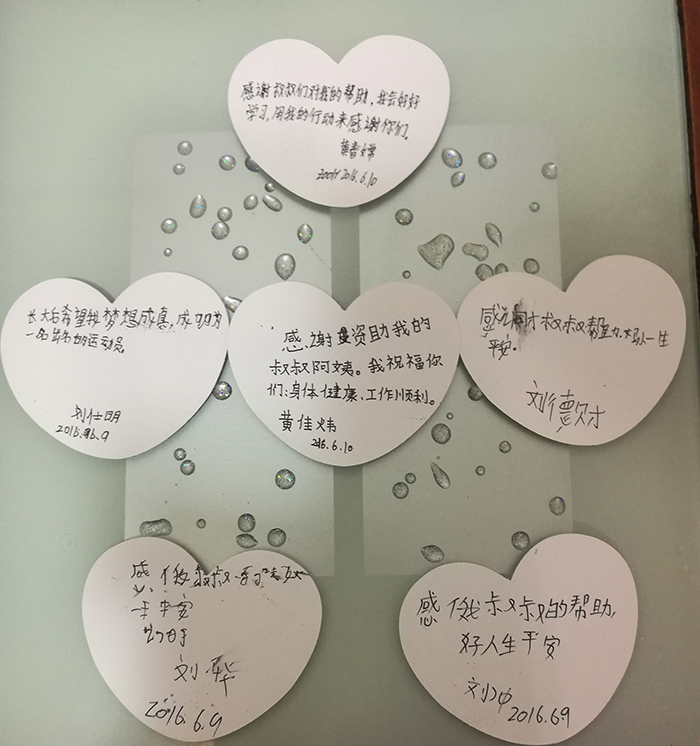 感谢叔叔们对我的帮助，我会好好
学习，用我的行动来感谢你们。
黄春嫦
2016.6.10
长大后希望我梦想成真，成功为
一名出色的运动员
刘仕明
2016.6.9
感谢资助我的
叔叔阿姨。我祝福你
们：身体健康、工作顺利。
黄佳炜
2016.6.10
叔叔帮助一生
平安。
刘德财
感叔叔
平安
刘华
2016.6.9
感叔叔的帮助，
好人生平安
刘冲
2016.6.9